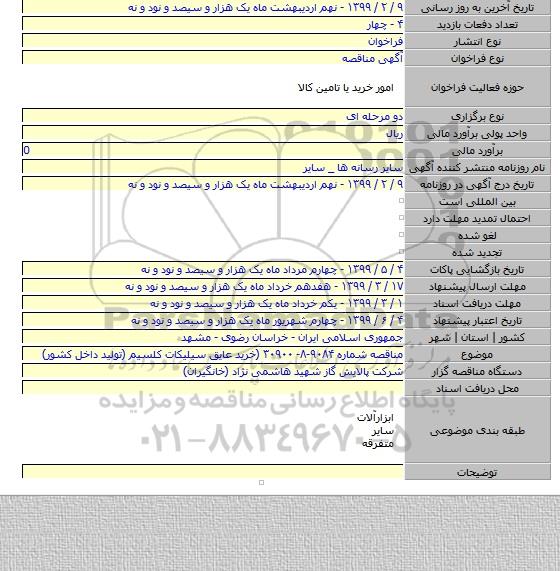 تاریخ آخرین به روز رسانی ۹ / ۲ / ۱۳۹۹ - نهم اردیبهشت ماه یک هزار و سیصد و نود و نه
تعداد دفعات بازدید ۴ - چهار
نوع انتشار فراخوان
نوع فراخوان آگهی مناقصه
حوزه فعالیت فراخوان امور خرید یا تامین کالا
نوع برگزاری دو مرحله ای
واحد پولی برآورد مالی ریال
برآورد مالی 0
نام روزنامه منتشر کننده آگهی سایر رسانه ها _ سایر
تاریخ درج آگهی در روزنامه ۹ / ۲ / ۱۳۹۹ - نهم اردیبهشت ماه یک هزار و سیصد و نود و نه
بین المللی است
احتمال تمدید مهلت دارد
لغو شده
تجدید شده
تاریخ بازگشایی پاکات ۴ / ۵ / ۱۳۹۹ - چهارم مرداد ماه یک هزار و سیصد و نود و نه
مهلت ارسال پیشنهاد ۱۷ / ۳ / ۱۳۹۹ - هفدهم خرداد ماه یک هزار و سیصد و نود و نه
مهلت دریافت اسناد ۱ / ۳ / ۱۳۹۹ - یکم خرداد ماه یک هزار و سیصد و نود و نه
تاریخ اعتبار پیشنهاد ۴ / ۶ / ۱۳۹۹ - چهارم شهریور ماه یک هزار و سیصد و نود و نه
کشور | استان | شهر جمهوری اسلامی ایران - خراسان رضوی - مشهد
موضوع مناقصه شماره ۹۰۸۴-۸-۳۰۹۰۰ (خرید عایق سیلیکات کلسیم (تولید داخل کشور)
دستگاه مناقصه گزار شرکت پالایش گاز شهید هاشمی نژاد (خانگیران)
محل دریافت اسناد
پایگاه اطلاع رسانی مناقصه و مزایده
طبقه بندی موضوعی ابزارآلات
سایر
متفرقه
۰۲۱-۸۸۳۴۹۶۷۰-۵
توضیحات